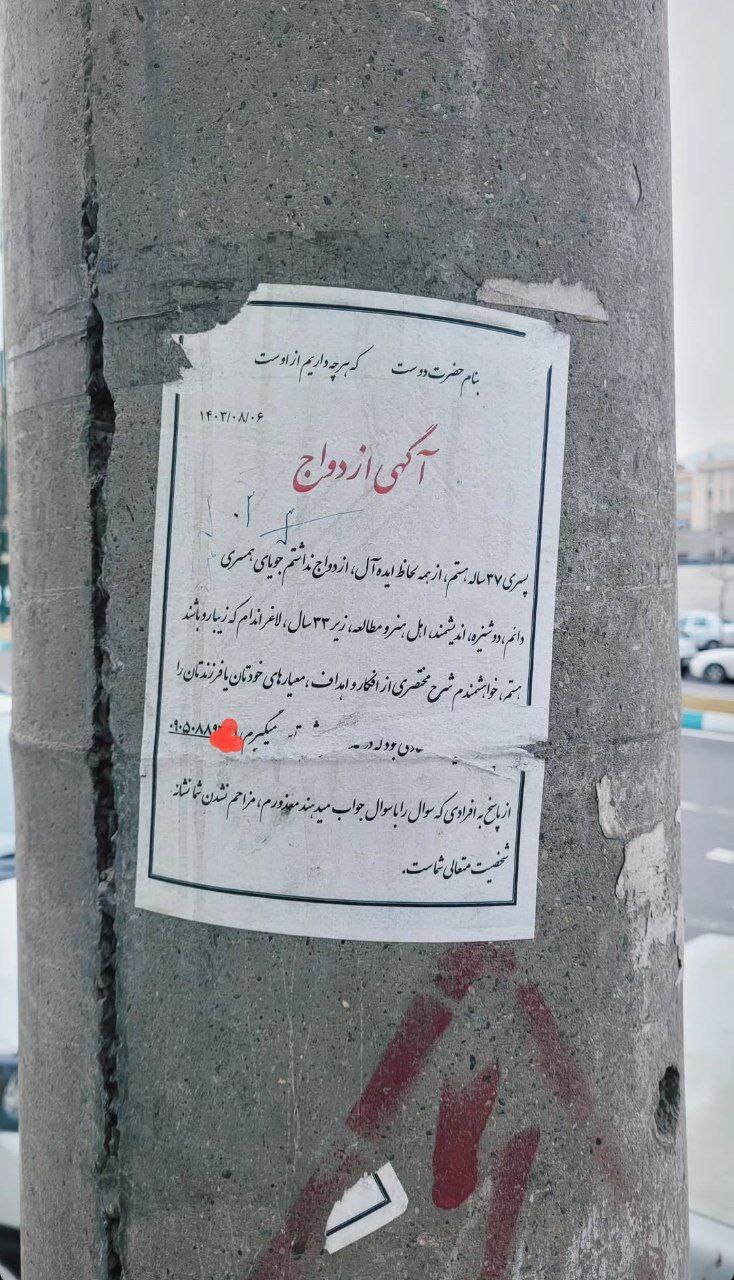 بنام حضرت دوست که هرچه داریم از اوست
۱۴۰۳/۰۸/۰۶
آگهی ازدواج
پسری ۳۷ ساله هستم، از همه لحاظ ایده آل، ازدواج نداشتم جویای همسری
دائم، دوشیزه، اندیشمند، اهل هنر و مطالعه، زیر ۳۳ سال، لاغر اندام که زیبارو باشند
هستم، خواهشمندم شرح مختصری از افکار و اهداف، معیارهای خودتان یا فرزندتان را
میگیرم، ۰۹۰۵۰۸۸۹
از پاسخ به افرادی که سوال را با سوال جواب میدهند معذورم، مزاحم نشدن شما نشانه
شخصیت متعالی شماست.